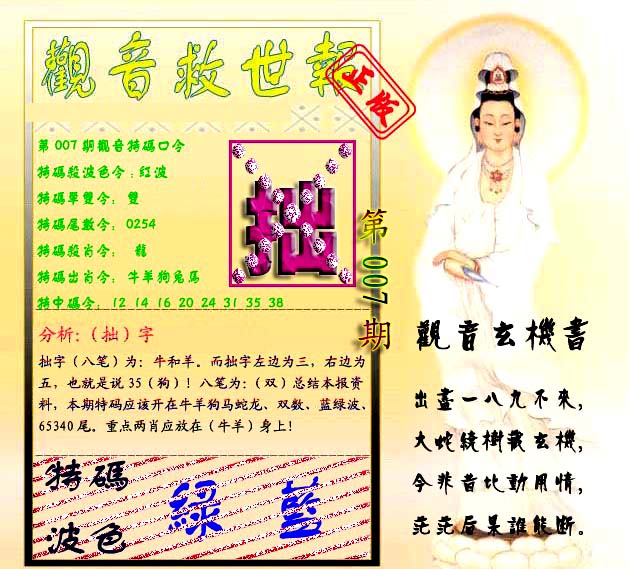 觀音救世報
正版
第007期觀音特碼口令
特碼殺波色令:紅波
特碼單雙令: 雙
特碼尾數令: 0254
特碼殺肖令: 龍
特碼出肖令: 牛羊狗兔馬
特中碼令: 12 14 16 20 24 31 35 38
拙
第007期
分析:（拙）字
拙字（八笔）为：牛和羊。而拙字左边为三，右边为
五，也就是说 35（狗）！八笔为：（双）总结本报资
料，本期特码应该开在牛羊狗马蛇龙、双数、蓝绿波、
65340 尾。重点两肖应放在（牛羊）身上！
特碼
波色
綠 藍
觀音玄機書
出盡一八九不來，
大蛇繞樹載玄機，
今非昔比動用情，
死死后果誰能斷。